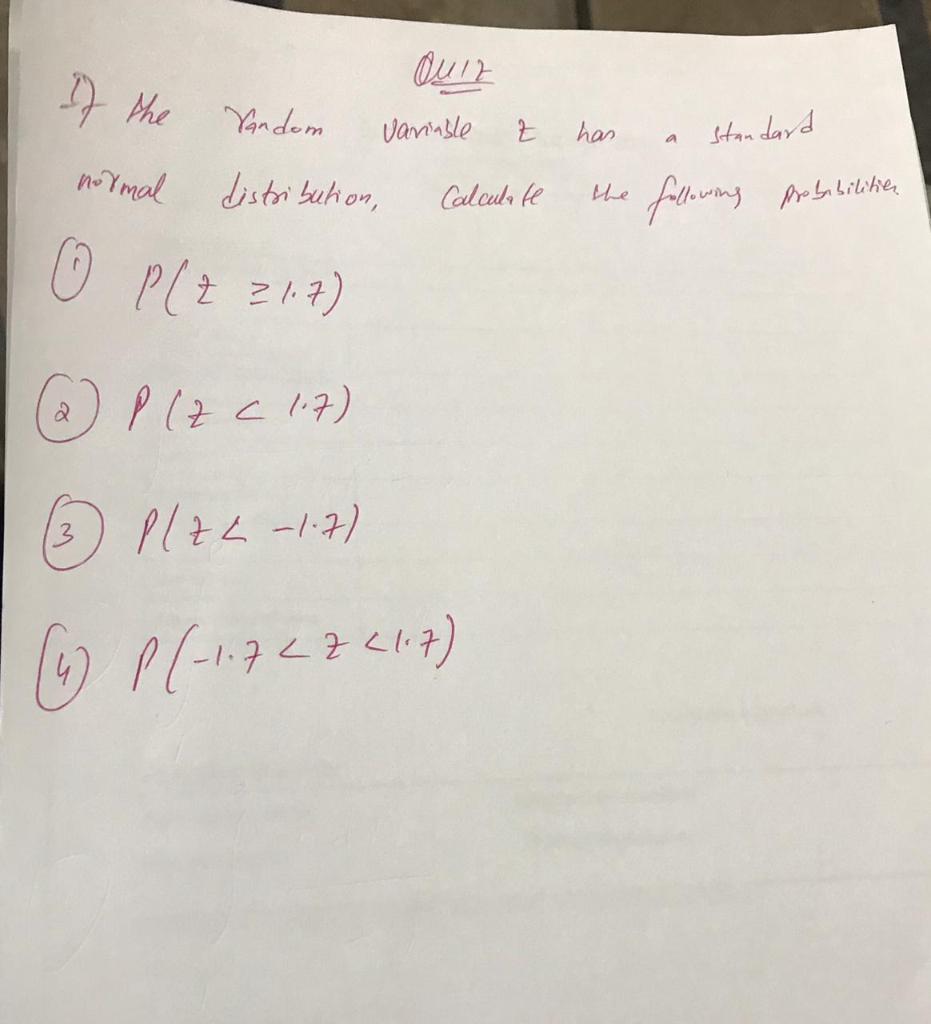 QUIZ
If the random variable z has a standard
normal distribution, Calculate the following probabilities
① P(z ≥ 1.7)
② P(z < 1.7)
③ P(z < -1.7)
④ P(-1.7 < z < 1.7)